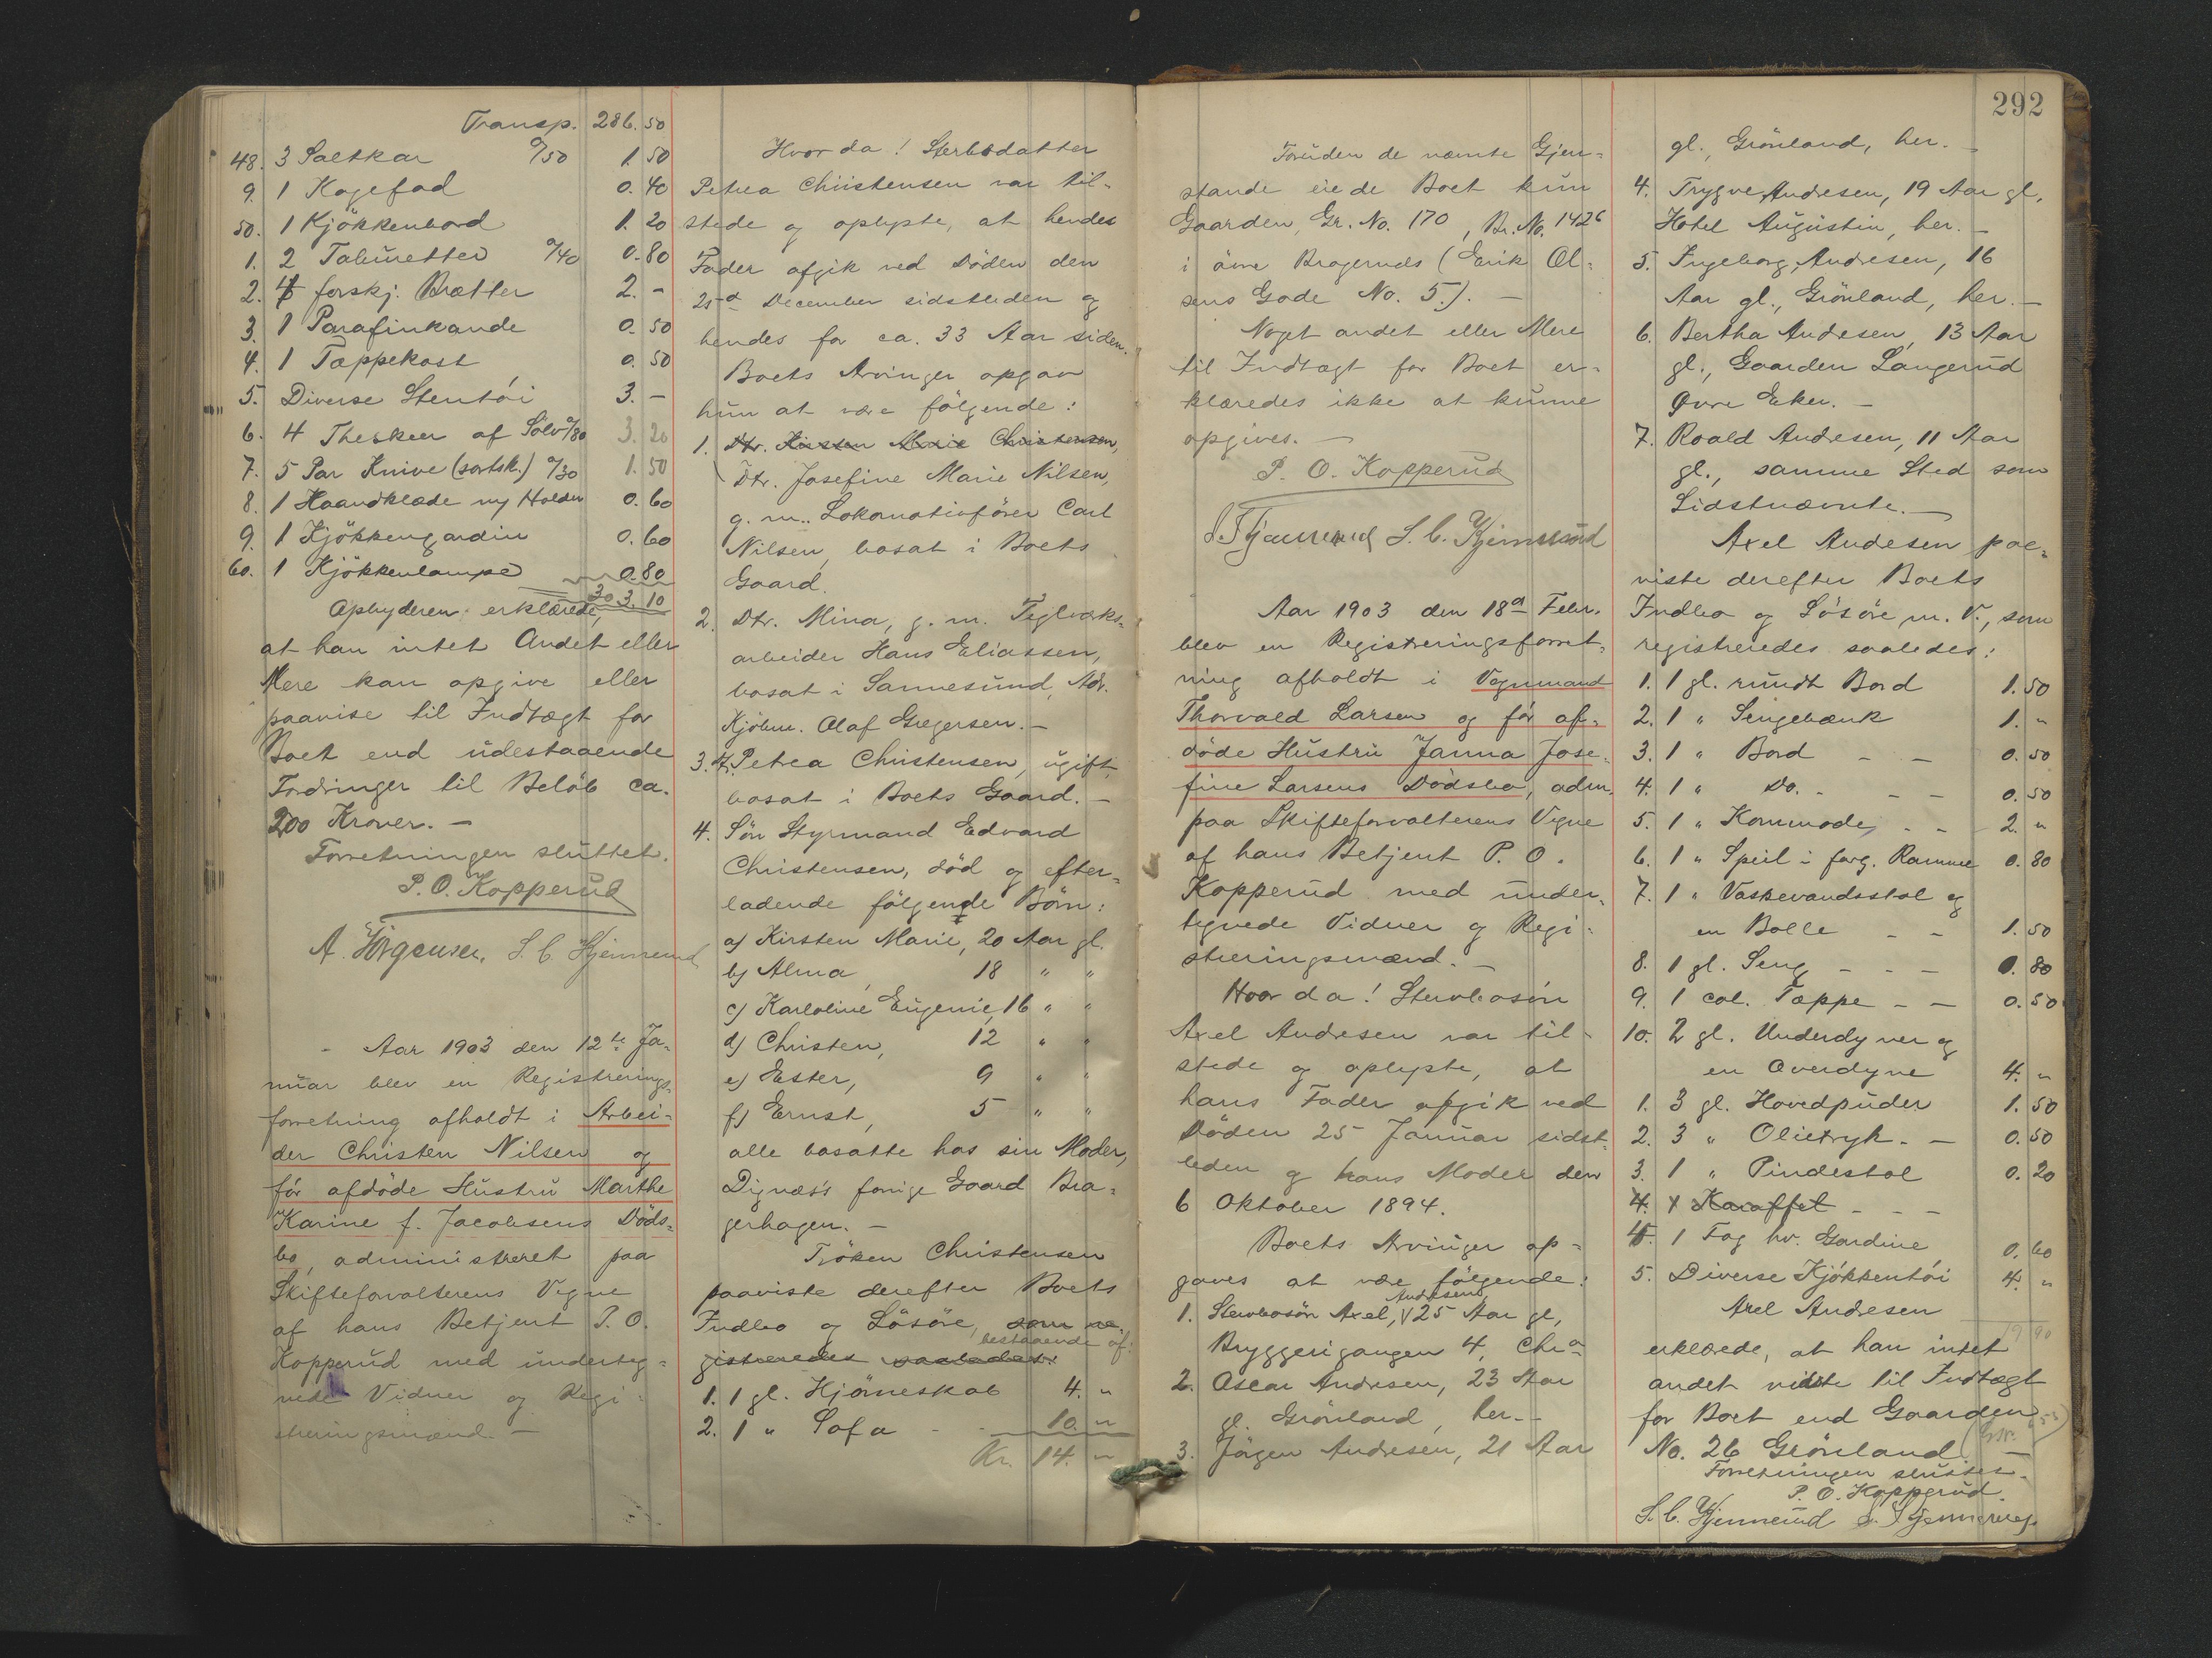 Transp. 286.50
48. 3 Saltkar a/50 1.50
9. 1 Kagefad 0.40
50. 1 Kjökkenbord 1.20
1. 2 Taburetter a/40 0.80
2. 4 forskj. Brætter 2.-
3. 1 Parafinkande 0.50
4. 1 Tæppekost 0.50
5. Diverse Stentöi 3.-
6. 4 Theskeer af Sölv a/80 3.20
7. 5 Par Knive (sortsk.) a/30 1.50
8. 1 Haandklæde m/ Holder 0.60
9. 1 Kjökkengardin 0.60
60. 1 Kjökkenlampe 0.80
303.10
Opbyderen erklærede,
at han intet Andet eller
Mere kan opgive eller
paavise til Indtægt for
Boet end udestaaende
Fordringer til Beløb ca.
200 Kroner. -
Forretningen sluttet.
P. O. Kopperud
A. Jörgensen. S. C. Hjennerud
- Aar 1903 den 12te Ja-
nuar blev en Registrerings-
forretning afholdt i Arbei-
der Christen Nilsen og
før afdöde Hustru Marthe
Karine f. Jacobsens Döds-
bo, administreret paa
Skifteforvalterens Vegne
af hans Betjent P. O.
Kopperud med underteg-
nede Vidner og Regi-
streringsmænd. -
Hvor da! Sterbodatter
Petrea Christensen var til-
stede og oplyste, at hendes
Fader afgik ved Döden den
25d December sidstleden og
hendes for ca. 33 Aar siden.
Boets Arvinger opgav
hun at være fölgende:
1. Dtr. Kirsten Marie Christensen,
Dtr. Josefine Marie Nilsen,
g. m. Lokomotivförer Carl
Nilsen, bosat i Boets
Gaard.
2. Dtr. Mina, g. m. Teglværks-
arbeider Hans Eliassen,
bosat i Sannesund, Adr.
Kjöbm. Olaf Gregersen. -
3. Dtr. Petrea Christensen, ugift,
bosat i Boets Gaard. -
4. Sön Styrmand Edvard
Christensen, död og efter-
ladende fölgende Börn:
a) Kirsten Marie, 20 Aar gl.
b) Alma, 18 " "
c) Karloline Eugenie, 16 " "
d) Christen, 12 " "
e) Ester, 9 " "
f) Ernst, 5 " "
alle bosatte hos sin Moder,
Dignæs's forrige Gaard Bra-
gerhagen. -
Fröken Christensen
paaviste derefter Boets
Indbo og Lösöre, som re-
bestaaende af:
gistreredes saaledes:
1. 1 gl. Hjörneskab 4. "
2. 1 " Sofa - - 10. "
Kr. 14. "
292
Foruden de nævnte Gjen-
stande eiede Boet kun
Gaarden, Gr. No. 170, Br. No. 1426
i övre Bragernds (Erik Ol-
sens Gade No. 5). -
Noget andet eller Mere
til Indtægt for Boet er-
klæredes ikke at kunne
opgives. -
P. O. Kopperud
S. C. Hjennerud
Aar 1903 den 18d Febr.
blev en Registreringsforret-
ning afholdt i Vognmand
Thorvald Larsen og før af-
döde Hustru Janna Jose-
fine Larsens Dödsbo, adm.
paa Skifteforvalterens Vegne
af hans Betjent P. O.
Kopperud med under-
tegnede Vidner og Regi-
streringsmænd. -
Hvor da! Sterbosön
Axel Andresen var til-
stede og oplyste, at
hans Fader afgik ved
Döden 25 Januar sidst-
leden og hans Moder den
6 Oktober 1894.
Boets Arvinger op-
gaves at være fölgende:
1. Sterbosön Axel Andresen, 25 Aar gl,
Bryggerigangen 4, Chra
2. Oscar Andresen, 23 Aar
gl. Grönland, her. -
3. Jörgen Andresen, 21 Aar
gl., Grönland, her. -
4. Trygve Andresen, 19 Aar gl.
Hotel Augustin, her. -
5. Ingeborg Andresen, 16
Aar gl., Grönland, her. -
6. Bertha Andresen, 13 Aar
gl., Gaarden Langerud
Øvre Eker. -
7. Roald Andresen, 11 Aar
gl., samme Sted som
Sidstnævnte. -
Axel Andresen paa-
viste derefter Boets
Indbo og Lösöre m. V., som
registreredes saaledes:
1. 1 gl. rundt Bord 1.50
2. 1 " Sengebænk 1. "
3. 1 " Bord - - 0.50
4. 1 " Do. - - - 0.50
5. 1 " Kommode - - 2. "
6. 1 " Speil i farg. Ramme 0.80
7. 1 " Vaskevandsstol og
en Bolle - - 1.50
8. 1 gl. Seng - - - 0.80
9. 1 col. Tæppe - - 0.50
10. 2 gl. Underdyner og
en Overdyne 4. "
1. 3 gl. Hovedpuder 1.50
2. 3 " Olietryk - - 0.50
3. 1 " Pindestol 0.20
4. 1 Karaffel - - -
4. 1 Fag hv. Gardine 0.60
5. Diverse Kjökkentöi 4. "
19 90
Axel Andresen
erklærede, at han intet
andet vidste til Indtægt
for Boet end Gaarden
No. 26 Grönland
Forretningen sluttet.
P. O. Kopperud.
S. C. Hjennerud